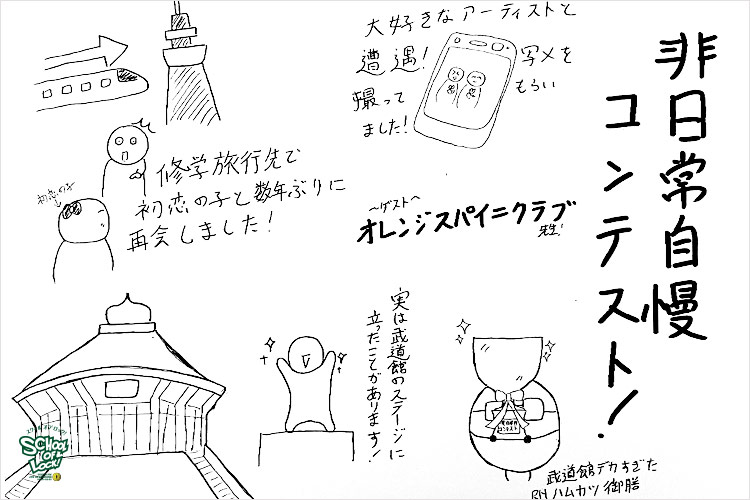 非日常自慢
コンテスト!
大好きなアーティストと
遭遇!写メを
撮ってもらい
ました!
修学旅行先で
初恋の子と数年ぶりに
再会しました!
初恋の子
〜ゲスト〜
オレンジスパイニクラブ
先生!
実は武道館のステージに
立ったことがあります!
SCHOOL
OF
LOCK!
武道館デカすぎた
RN ハムカツ御膳